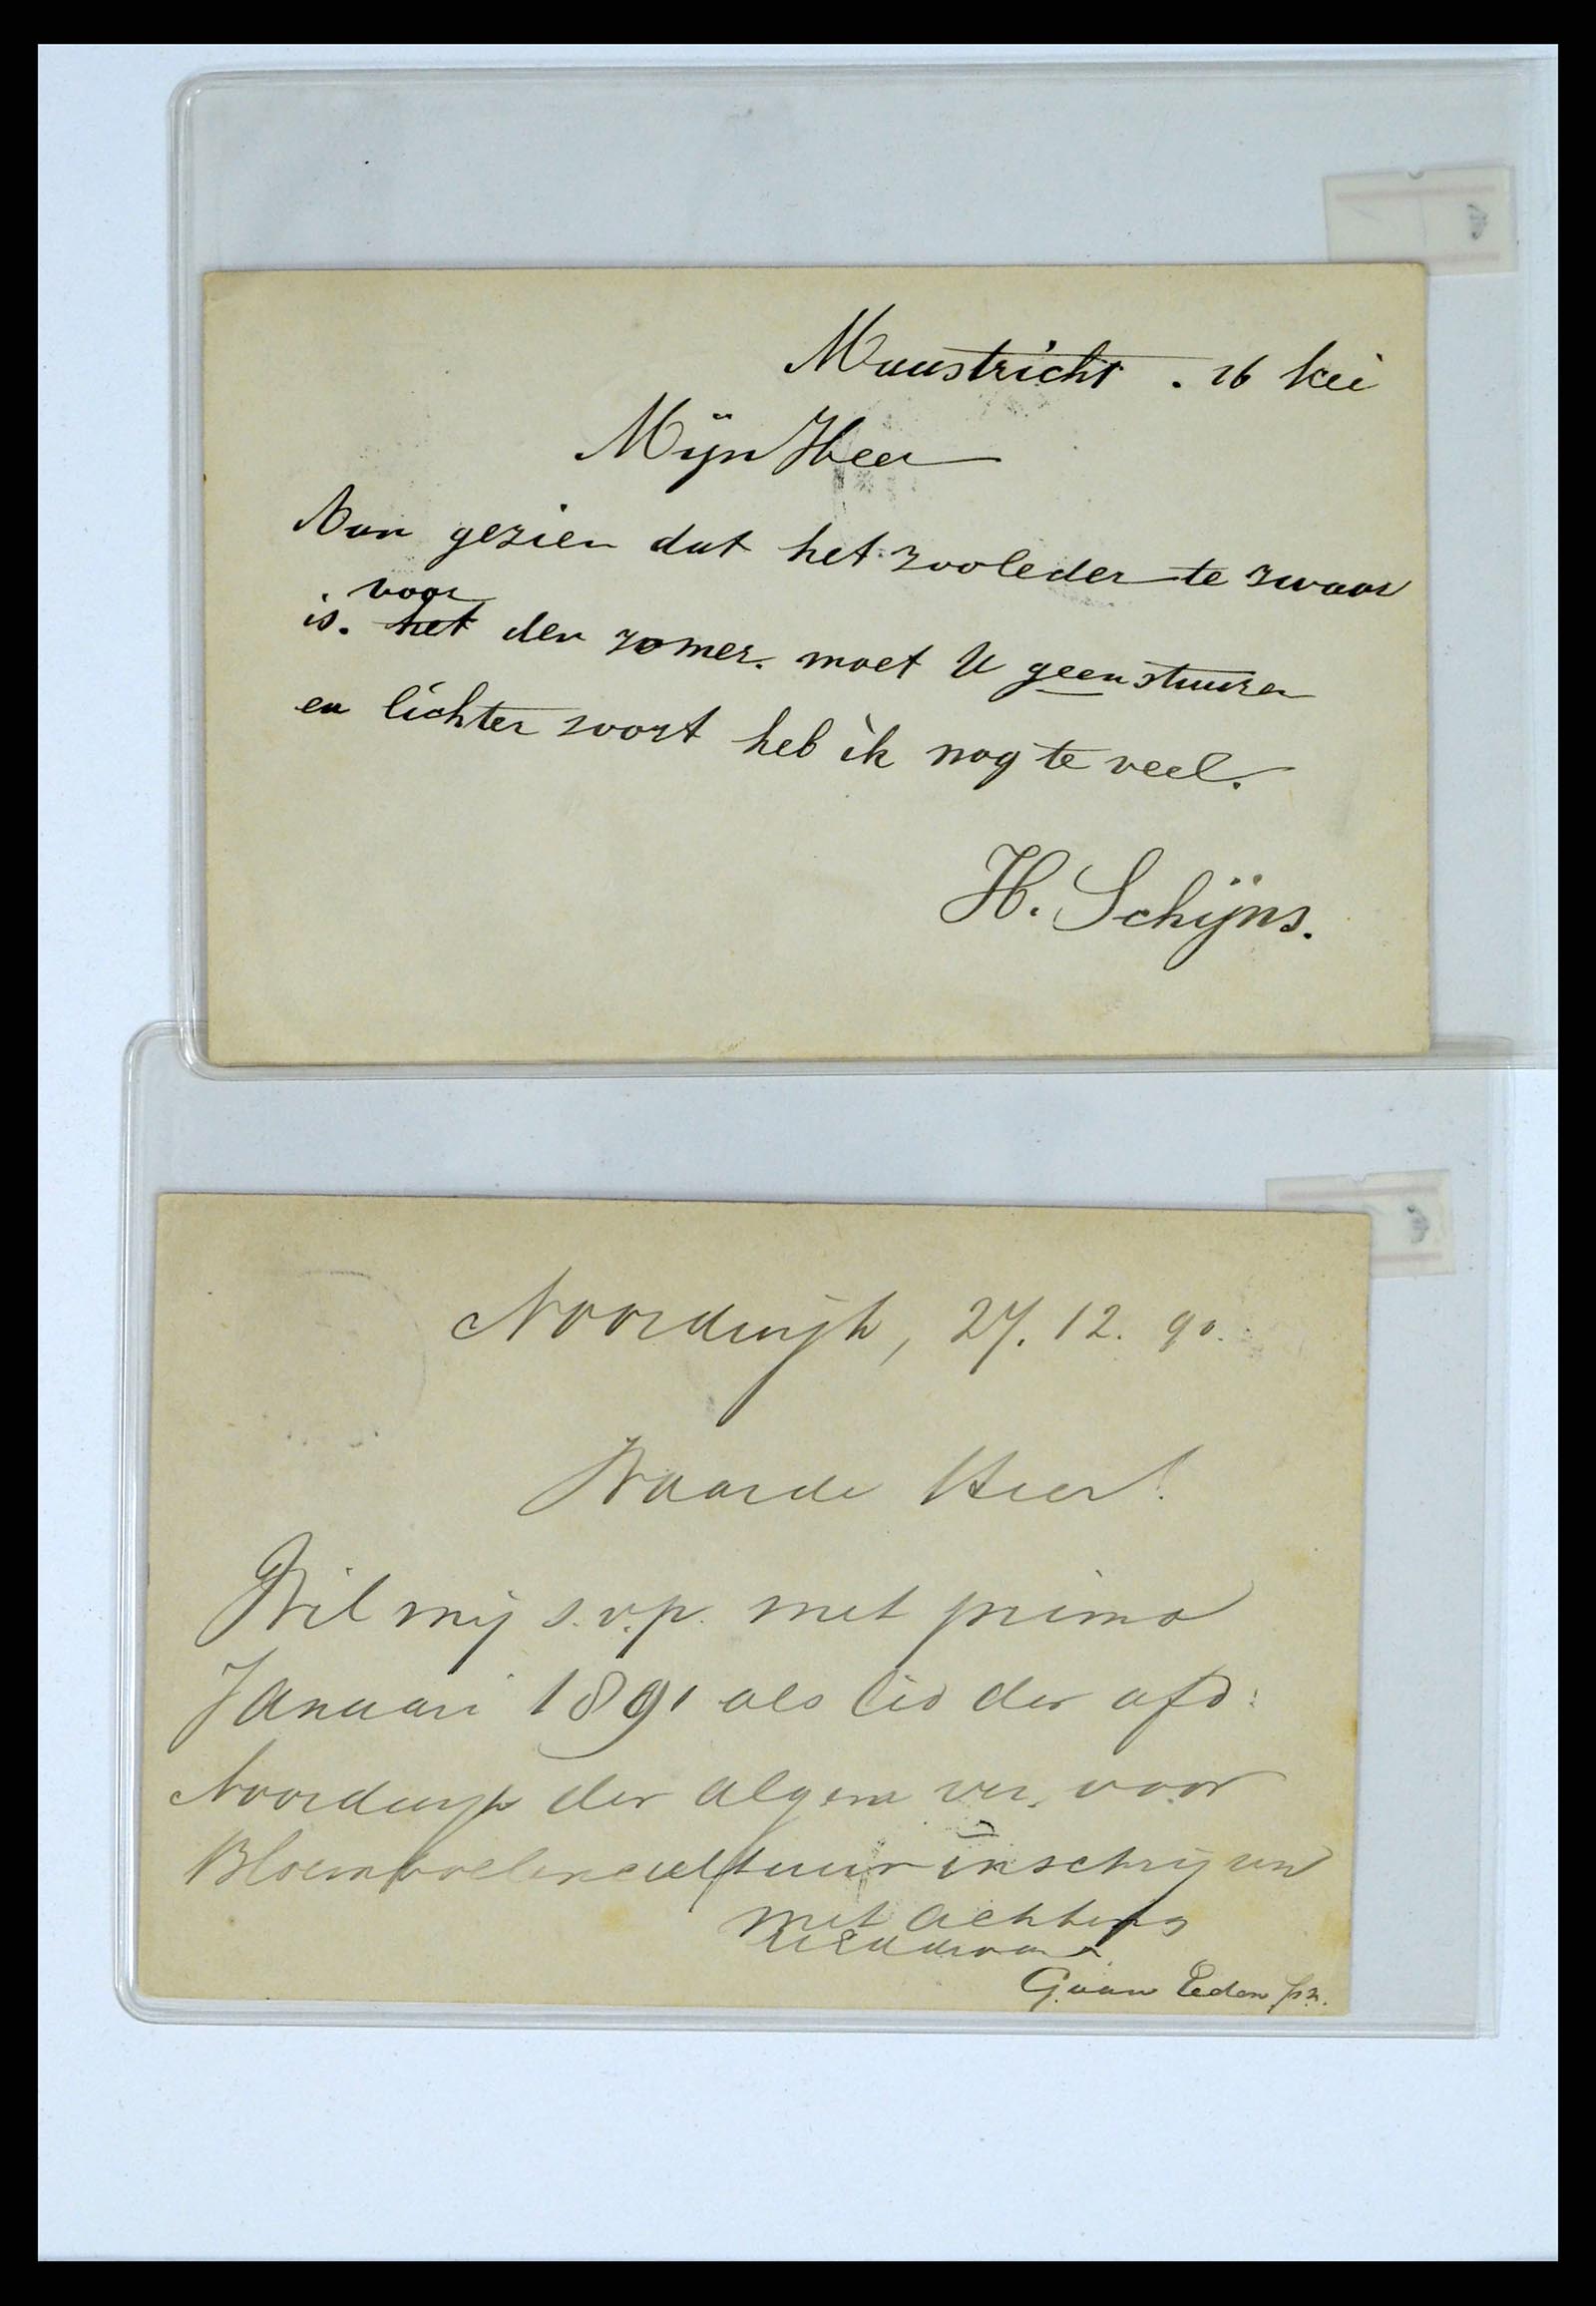 Maastricht . 16 
Mijn Heer
Aan gezien dat het zooleder te zwaar
voor
is. het den zomer. moet U geen stuuren
en lichter soort heb ik nog te veel.
H. Schijns.
Noordwijk, 27. 12. 90.
Waarde Heer!
Wil mij s.v.p. met primo
Januari 1891 als lid der afd:
Noordwijk der Algem ver. voor
Bloembollencultuur inschrijven
Met Achting
G. van Eeden Pzn.